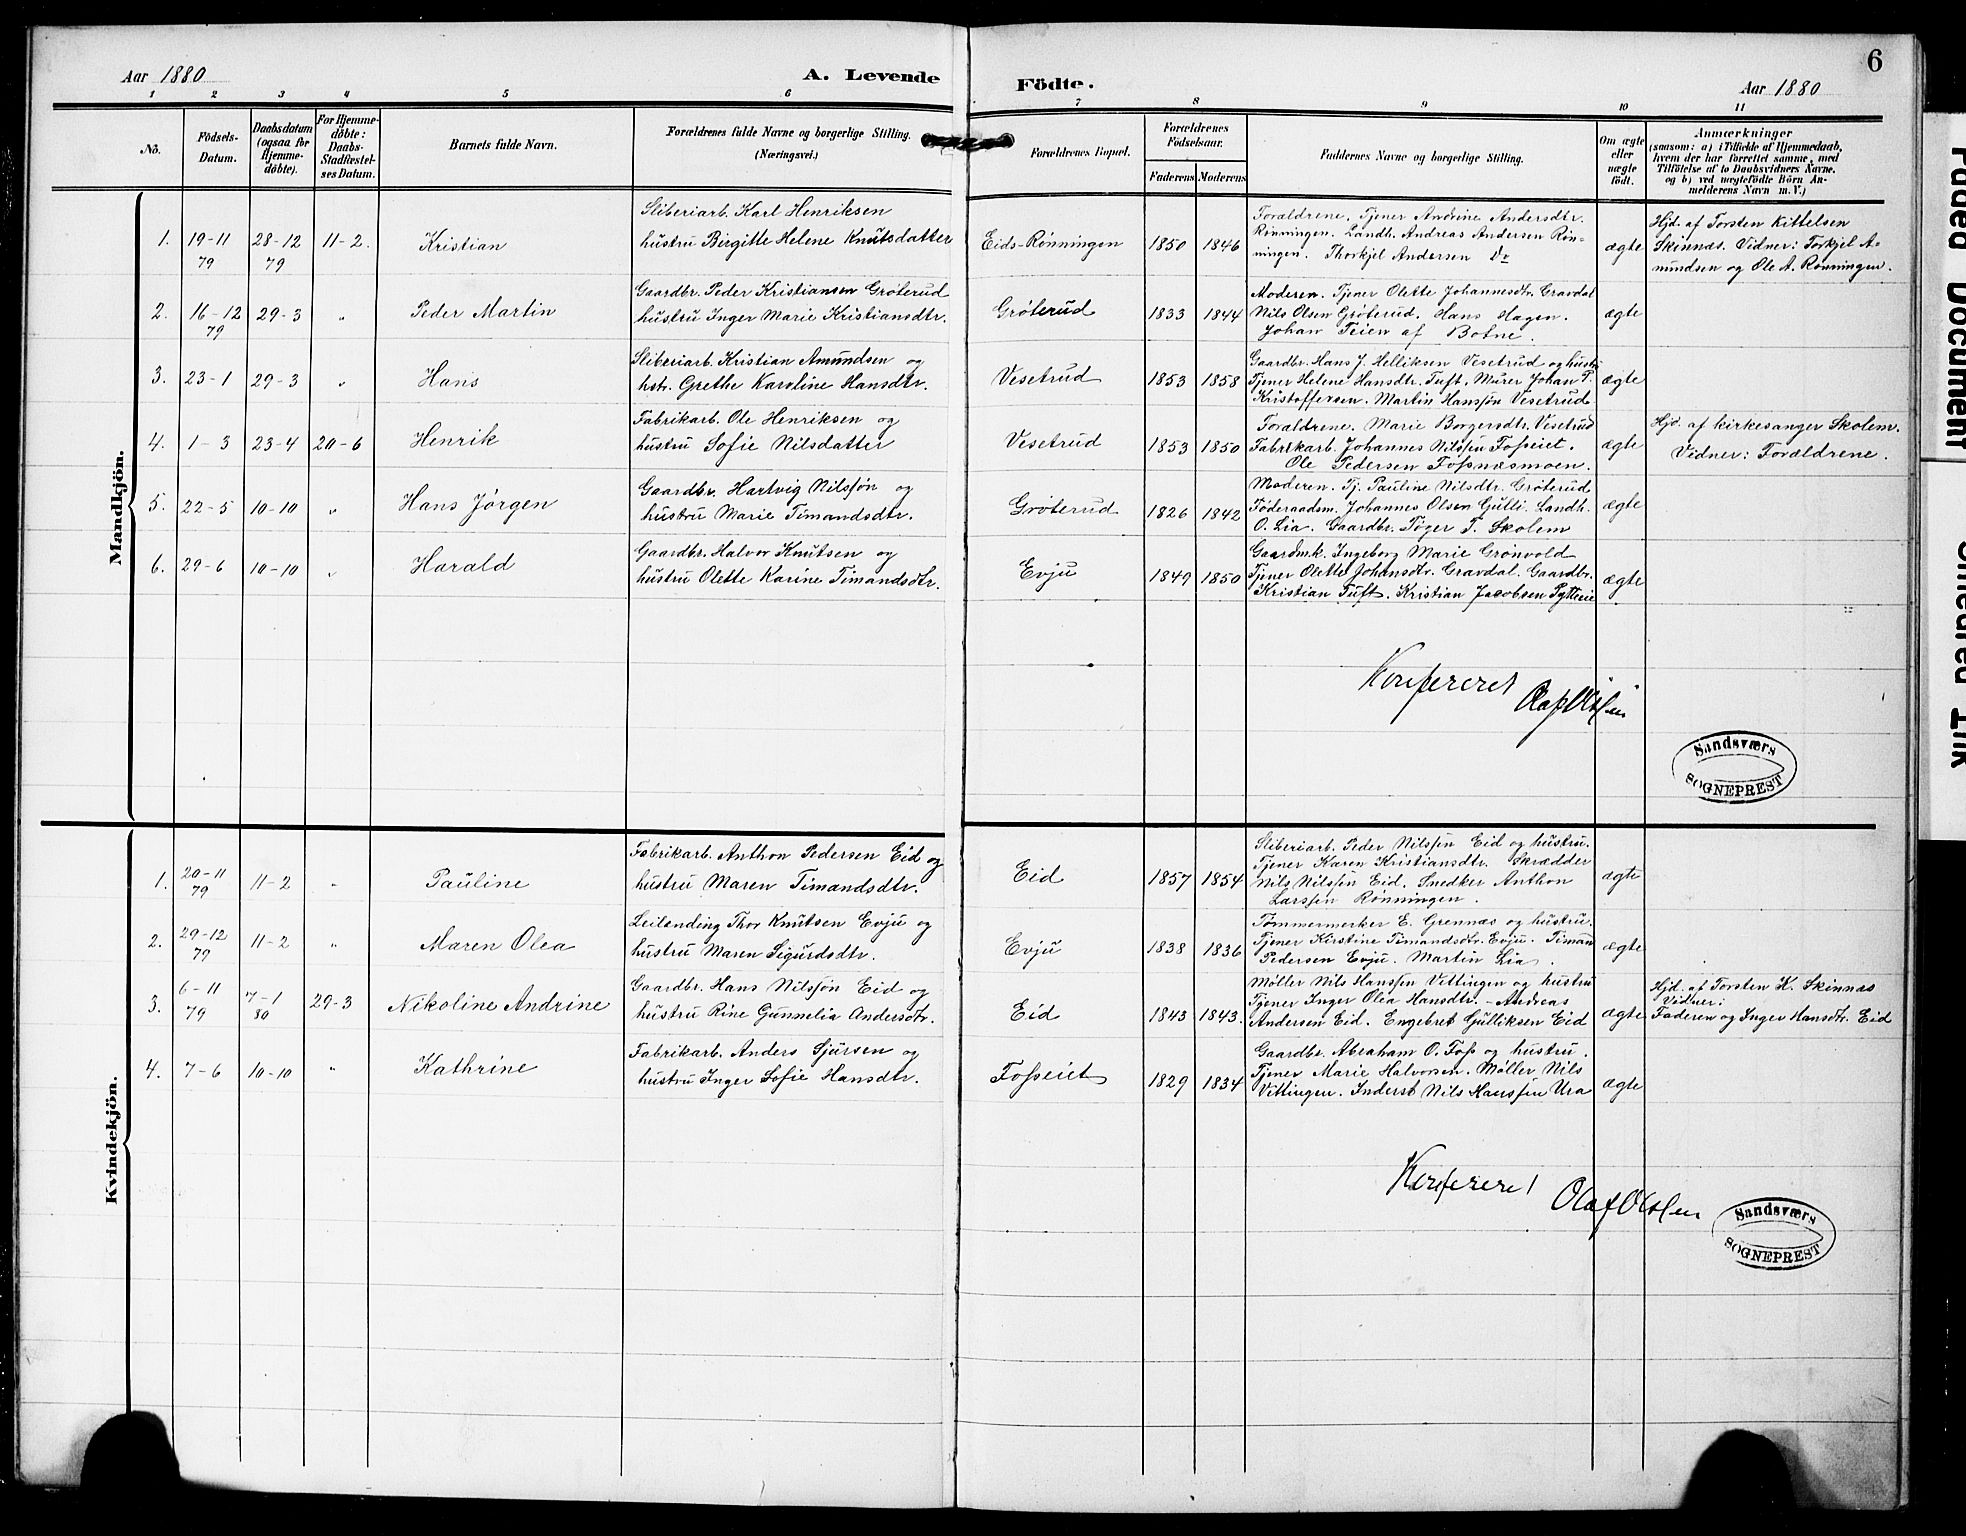 6
Aar 1880
A. Levende
Födte.
Aar 1880
1 2 3 4 5 6 7 8 9 10 11
Nö.
Födsels-
Datum.
Daabsdatum
(ogsaa for
Hjemme-
döbte).
For Hjemme-
döbte:
Daabs-
Stadfæstel-
ses Datum.
Barnets fulde Navn.
Forældrenes fulde Navne og borgerlige Stilling.
(Næringsvei.)
Forældrenes Bopæl.
Forældrenes
Födselsaar.
Faderens Moderens
Faddernes Navne og borgerlige Stilling.
Om ægte
eller
uægte
födt.
Anmærkninger
(saasom: a) i Tilfælde af Hjemmedaab,
hvem der har forrettet samme, med
Tilföielse af to Daabsvidners Navne.
og b) ved uægtefödte Börn An-
melderens Navn m. V.)
Mandkjön.
1. 19-11
79
28-12
79
11-2.
Kristian
Sliberiarb. Karl Henriksen
hustru Birgitte Helene Knutsdatter
Eids-Rønningen
1850 1846
Forældrene. Tjener Andrine Andersdtr.
Rønningen. Landh. Andreas Andersen Røn-
ningen. Thorkjel Andersen Do
ægte
Hjd. af Torsten Kittelsen
Skinnæs. Vidner: Torkjel A-
mundsen og Ole A. Rønningen.
2. 16-12
79
29-3 „
Peder Martin
Gaardbr. Peder Kristiansen Grøterud
hustru Inger Marie Kristiansdtr.
Grøterud
1833 1844
Moderen. Tjener Olette Johannesdtr. Gravdal
Nils Olsen Grøterud. Hans Hagen.
Johan Teien af Botne.
ægte
3. 23-1 29-3 „
Hans
Sliberiarb. Kristian Amundsen og
hstr. Grethe Karoline Hansdtr.
Vesetrud
1853 1858
Gaardbr. Hans J. Helliksen Vesetrud og hustru
Tjener Helene Hansdtr. Tuft. Murer Johan P.
Kristoffersen. Martin Hanssøn Vesetrud
ægte
4. 1-3 23-4 20-6
Henrik
Fabrikarb. Ole Henriksen og
hustru Sofie Nilsdatter
Vesetrud
1853 1850
Forældrene. Marie Borgersdtr. Vesetrud
Fabrikarb. Johannes Nilssøn Fosseiet.
Ole Pedersen Fossnæsmoen.
ægte
Hjd. af kirkesanger Skolem.
Vidner: Forældrene.
5. 22-5 10-10 „
Hans Jørgen
Gaardbr. Hartvig Nilssøn og
hustru Marie Timandsdtr.
Grøterud
1826 1842
Moderen. Tj. Pauline Nilsdtr. Grøterud
Føderaadsm. Johannes Olsen Gulli. Landh.
O. Lia. Gaardbr. Tøger T. Skolem
ægte
6. 29-6 10-10 „
Harald
Gaardbr. Halvor Knutsen og
hustru Olette Karine Timandsdtr.
Evju
1849 1850
Gaardmk. Ingeborg Marie Grønvold
Tjener Olette Johansdtr. Gravdal. Gaardbr.
Kristian Tuft. Kristian Jacobsen
ægte
Konfereret
Olaf Olsen
Sandsværs
SOGNEPREST
Kvindekjön.
1. 20-11
79
11-2 „
Pauline
Fabrikarb. Anthon Pedersen Eid og
hustru Maren Timandsdtr.
Eid
1857 1854
Sliberiarb. Peder Nilssøn Eid og hustru.
Tjener Karen Kristiansdtr. Skrædder
Nils Nilssøn Eid. Snedker Anthon
Larssen Rønningen.
ægte
2. 29-12
79
11-2 „
Maren Olea
Leilending Thor Knutsen Evju og
hustru Maren Sigurdsdtr.
Evju
1838 1836
Tømmermerker E. Grennæs og hustru.
Tjener Kirstine Timandsdtr. Evju. Timan
Pedersen Evju. Martin Lia.
ægte
3. 6-11
79
7-1
80
29-3
Nikoline Andrine
Gaardbr. Hans Nilssøn Eid og
hustru Rine Gunnelia Andersdtr.
Eid
1843 1843.
Møller Nils Hanssen Vittingen og hustru
Tjener Inger Olea Hansdtr. - Andreas
Andersen Eid. Engebret Gulliksen Eid
ægte
Hjd. af Torsten K. Skinnæs
Vidner:
Faderen og Inger Hansdtr. Eid
4. 7-6 10-10 „
Kathrine
Fabrikarb. Anders Sjursen og
hustru Inger Sofie Hansdtr.
Fosseiet
1829 1834
Gaardbr. Abraham O. Foss og hustru.
Tjener Marie Halvorsen. Møller Nils
Vittingen. Inderst Nils Hanssen Ura
ægte
Konfereret
Olaf Olsen
Sandsværs
SOGNEPREST
Faded Document